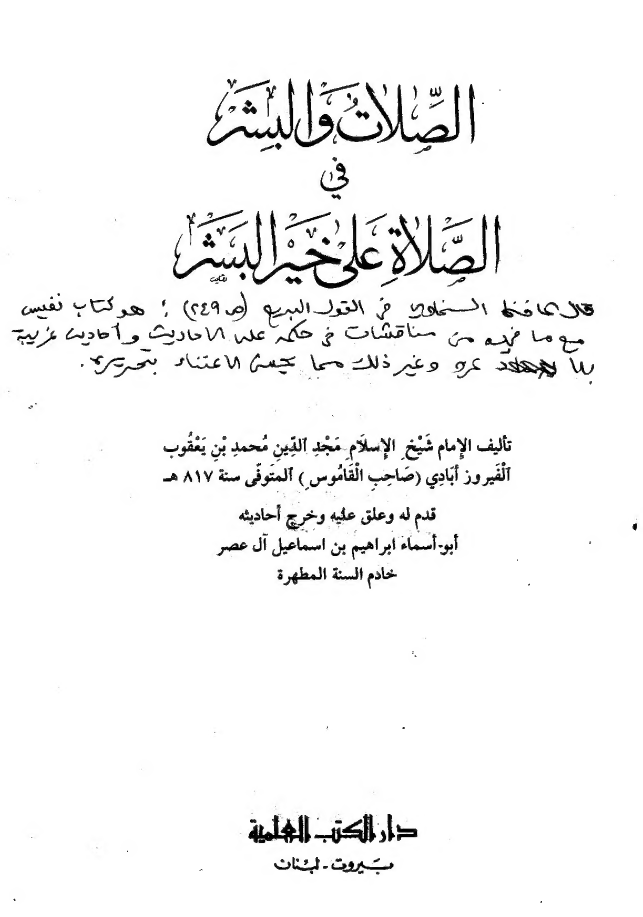 الصِّلَاتُ وَالبِشَر
في
الصَّلَاةِ عَلَى خَيرِ البَشَر
قال الحافظ السخاوي في القول البديع (ص ٢٤٩) : هو كتاب نفيس
مع ما فيه من مناقشات في حكمه على الأحاديث وأحاديث غريبة
بلا عزو وغير ذلك مما يحسن الاعتناء بتحريره.
تأليف الإمام شَيْخ الإسلام مَجْدِ الدِّينِ مُحمدِ بْنِ يَعْقُوب
الْفَيروز أبَادِي (صَاحِبِ الْقَامُوس) المتَوفَّى سنة ٨١٧ هـ
قدم له وعلق عليه وخرج أحاديثه
أبو-أسماء ابراهيم بن اسماعيل آل عصر
خادم السنة المطهرة
دار الكتب العلمية
بيروت - لبنان